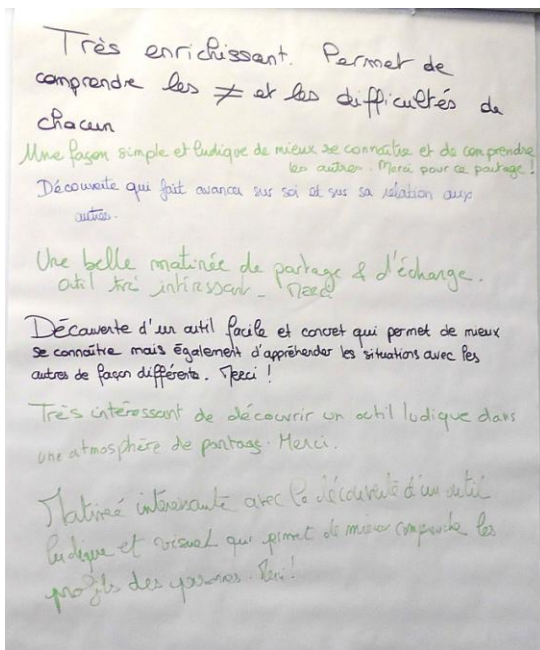 Très enrichissant. Permet de
comprendre les ≠ et les difficultés de
chacun
Une façon simple et ludique de mieux se connaître et de comprendre
les autres. Merci pour ce partage !
Découverte qui fait avancer sur soi et sur sa relation aux
autres.
Une belle matinée de partage & d'échange.
Outil très intéressant _ Merci
Découverte d'un outil facile et concret qui permet de mieux
se connaître mais également d'appréhender les situations avec les
autres de façon différente. Merci !
Très intéressant de découvrir un outil ludique dans
une atmosphère de partage. Merci.
Matinée intéressante avec la découverte d'un outil
ludique et visuel qui permet de mieux comprendre les
profils des personnes. Merci !